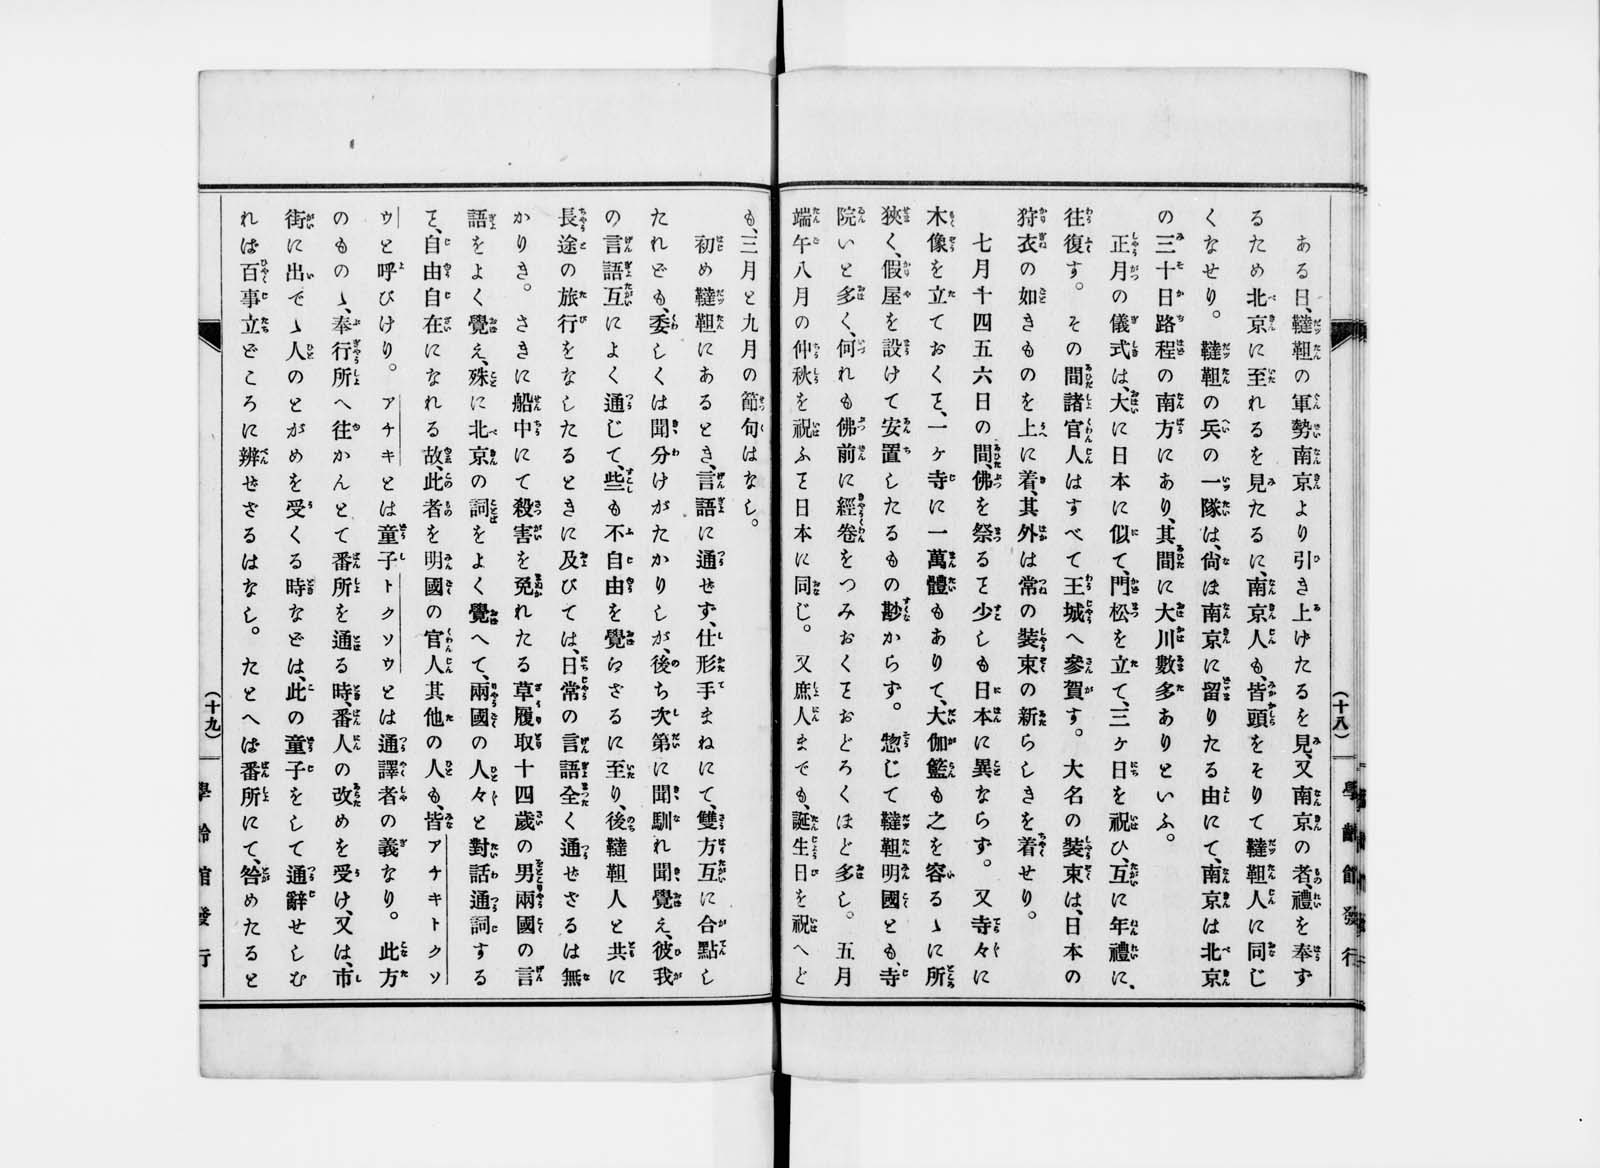 ある日、韃靼の軍勢南京より引き上げたるを見、又南京の者、禮を奉ず
るため北京に至れるを見たるに、南京人も、皆頭をそりて韃靼人に同じ
くなせり。韃靼の兵の一隊は、尙ほ南京に留りたる由にて、南京は北京
の三十日路程の南方にあり、其間に大川數多ありといふ。
正月の儀式は、大に日本に似て、門松を立て、三ヶ日を祝ひ、互に年禮に、
往復す。その間諸官人はすべて王城へ參賀す。大名の裝束は、日本の
狩衣の如きものを上に着、其外は常の裝束の新らしきを着せり。
七月十四五六日の間、佛を祭るヿ少しも日本に異ならず。又寺々に
木像を立ておくヿ、一ヶ寺に一萬體もありて、大伽籃も之を容るゝに所
狹く、假屋を設けて安置したるもの尠からず。惣じて韃靼明國とも、寺
院いと多く、何れも佛前に經卷をつみおくヿおどろくほど多し。五月
端午八月の仲秋を祝ふヿ日本に同じ。又庶人までも、誕生日を祝へど
(十八)
學齡館發行
も、三月と九月の節句はなし。
初め韃靼にあるとき、言語に通せず、仕形手まねにて、雙方互に合點し
たれども、委しくは聞分けがたかりしが、後ち次第に聞馴れ聞覺え、彼我
の言語互によく通じて、些も不自由を覺らざるに至り、後韃靼人と共に
長途の旅行をなしたるときに及びては、日常の言語全く通せざるは無
かりき。さきに船中にて殺害を免れたる草履取十四歲の男兩國の言
語をよく覺え、殊に北京の詞をよく覺へて、兩國の人々と對話通詞する
ヿ、自由自在になれる故、此者を明國の官人其他の人も、皆アチキトクソ
ウと呼びけり。アチキとは童子トクソウとは通譯者の義なり。此方
のもの、奉行所へ往かんとて番所を通る時、番人の改めを受け、又は、市
街に出でゝ人のとがめを受くる時などは、此の童子をして通辭せしむ
れば百事立どころに辨せざるはなし。たとへば番所にて、咎めたると
(十九)
學齡館發行